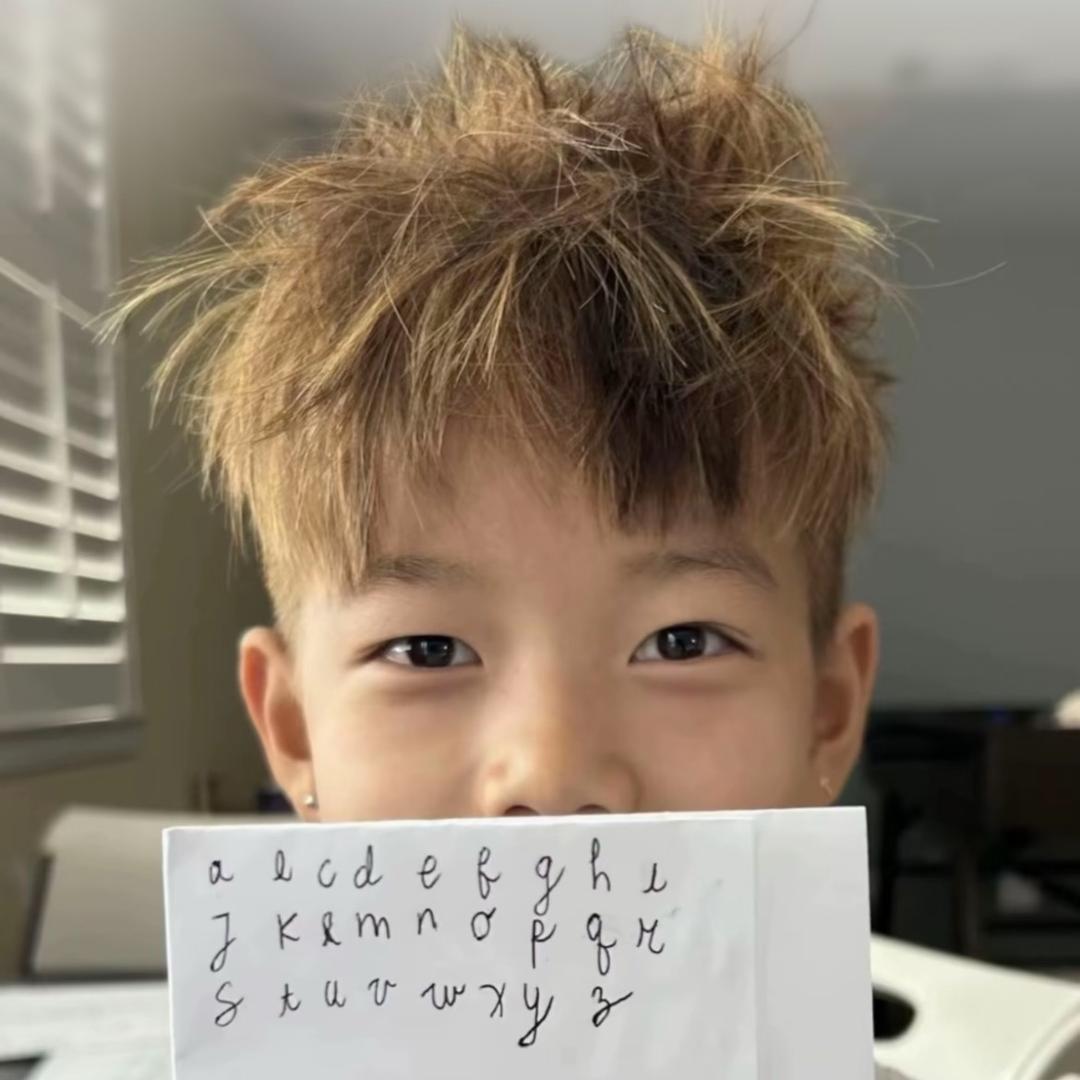 a b c d e f g h i
J K l m n o p q r
s t u v w x y z